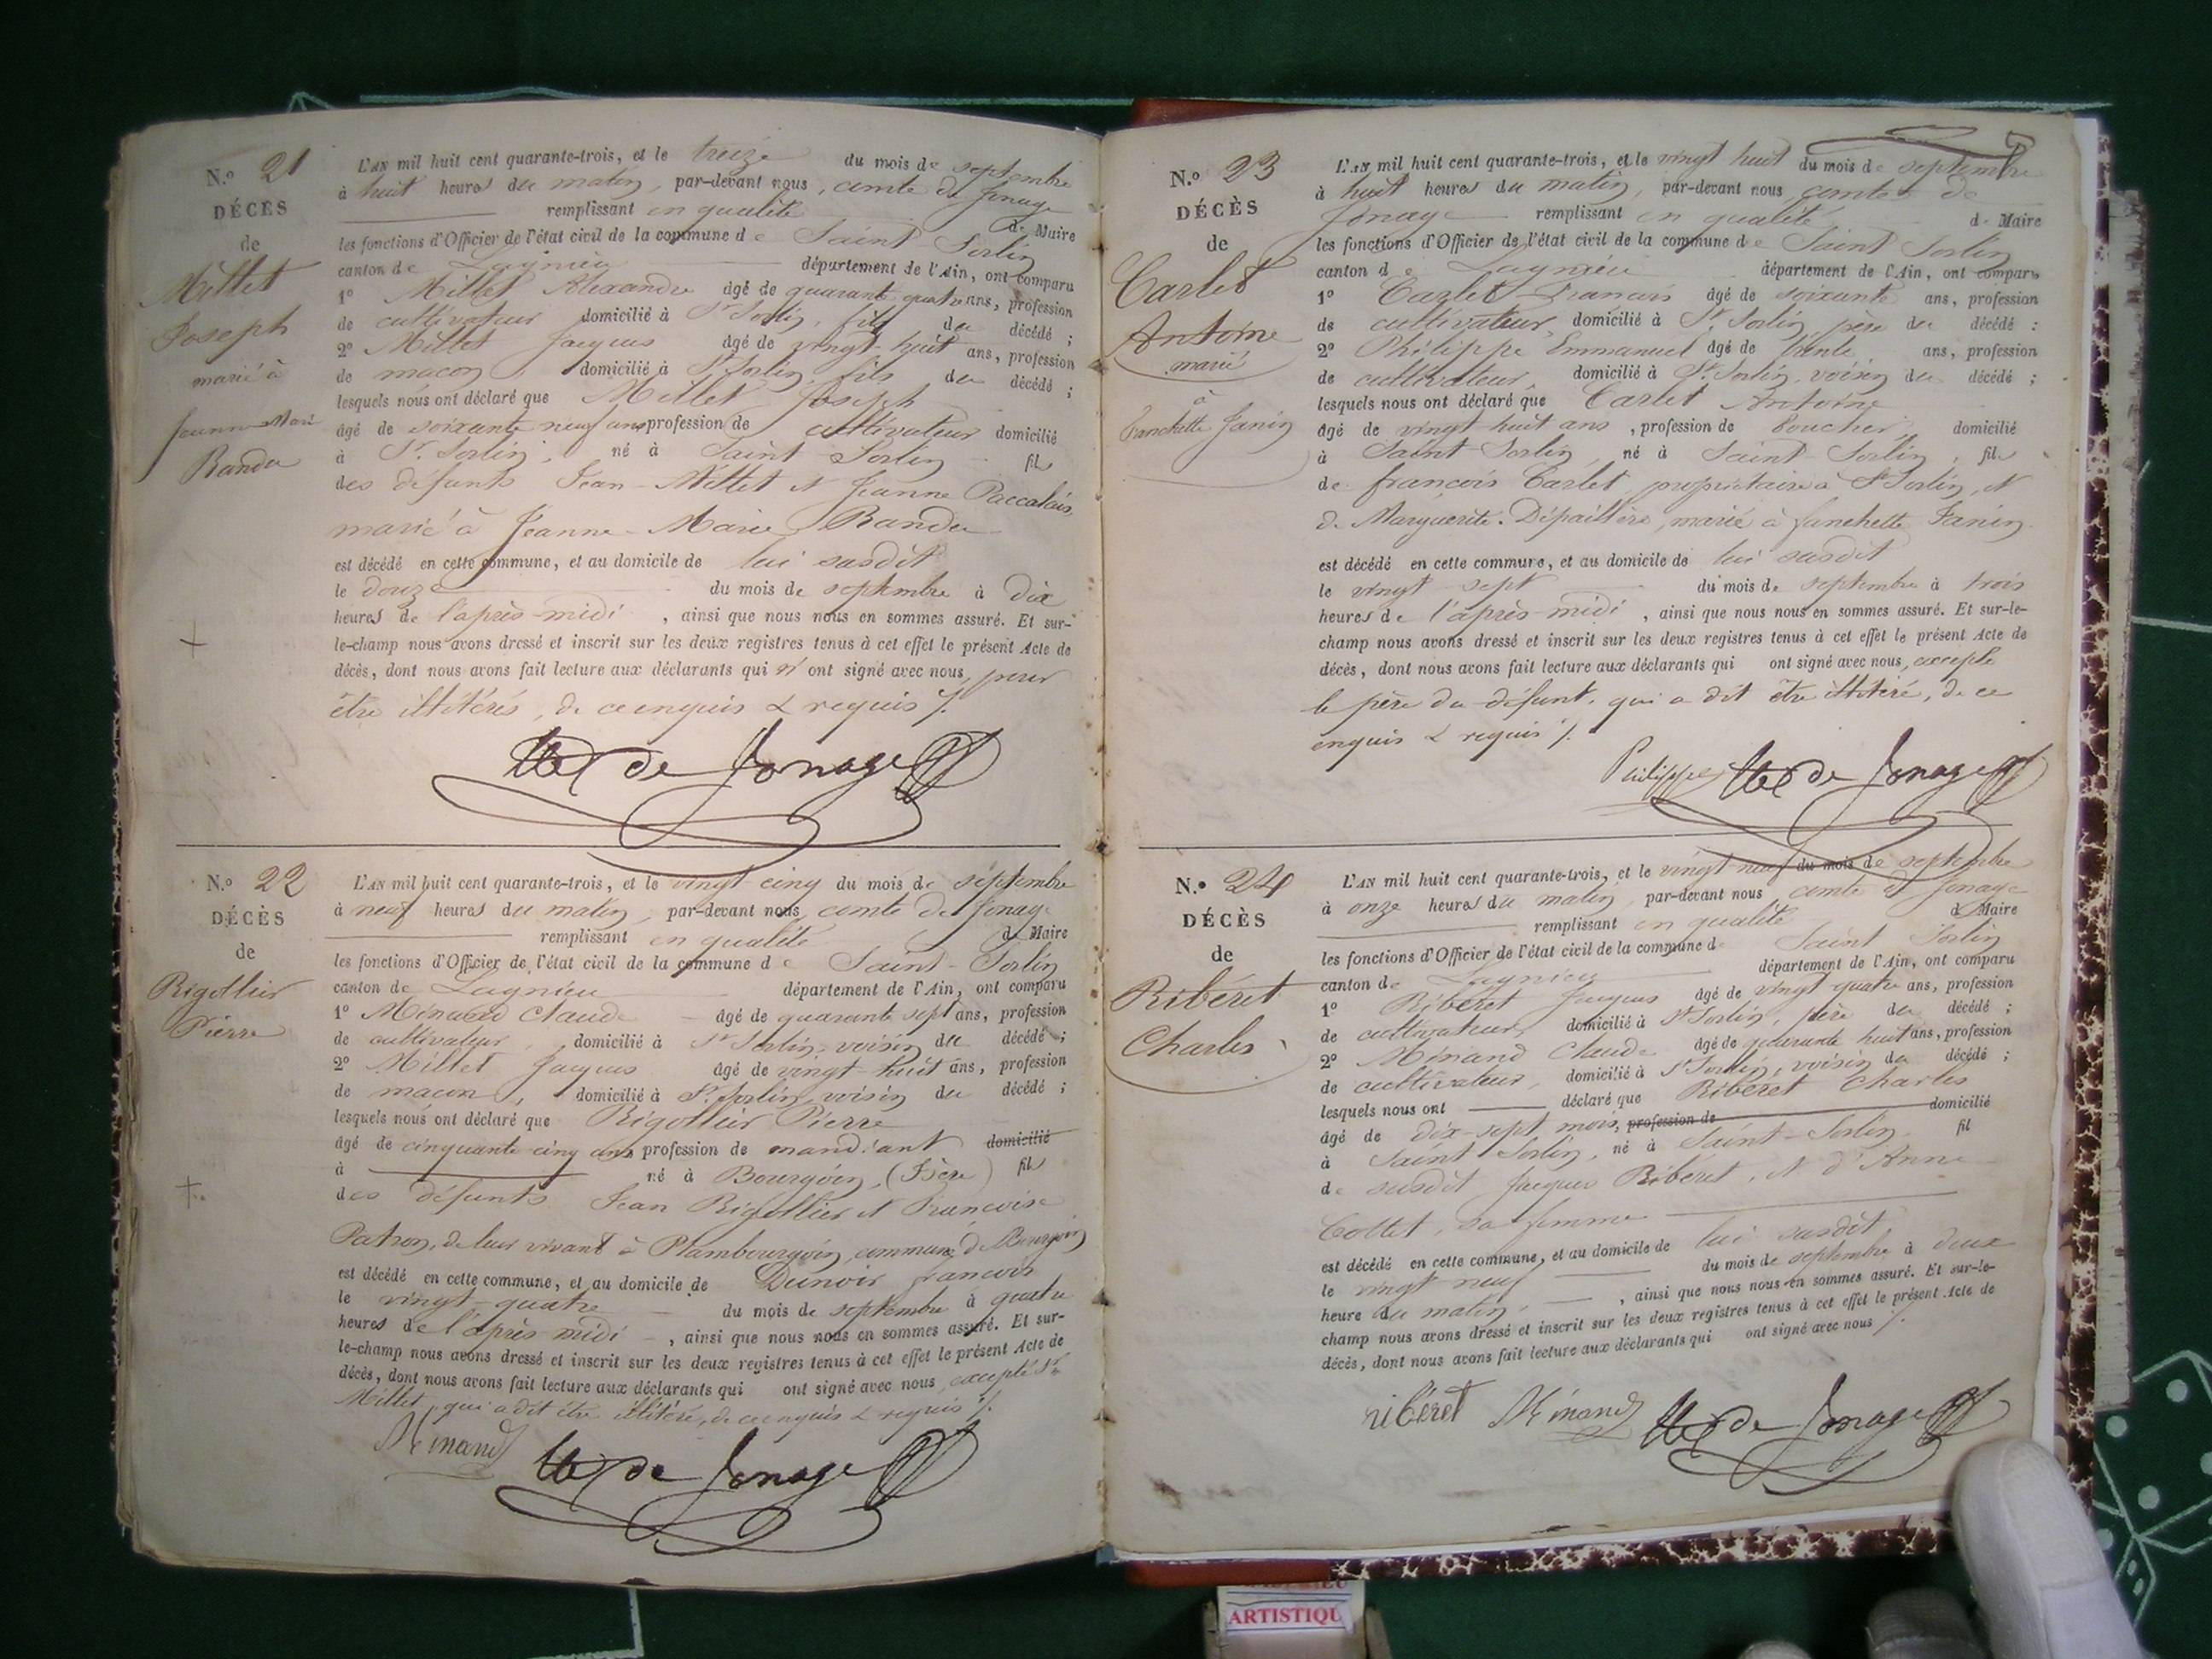 N.o 21
DÉCÈS
de
Millet
Joseph
marié à
Jeanne Marie
Randu
L'AN mil huit cent quarante-trois, et le treize du mois de septembre
à huit heures du matin, par-devant nous, comte de Jonage
remplissant en qualité de Maire
les fonctions d'Officier de l'état civil de la commune de Saint Sorlin
canton de Lagnieu département de l'Ain, ont comparu
1o Millet Alexandre âgé de quarante quatre ans, profession
de cultivateur domicilié à St Sorlin, fils du décédé ;
2o Millet Jacques âgé de vingt-huit ans, profession
de maçon, domicilié à St Sorlin, fils du décédé ;
lesquels nous ont déclaré que Millet Joseph
âgé de soixante neuf ans profession de cultivateur domicilié
à St. Sorlin, né à Saint-Sorlin fils
des défunts Jean Millet et Jeanne Paccalais,
marié à Jeanne-Marie Randu
est décédé en cette commune, et au domicile de lui susdit
le douze du mois de septembre à dix
heures de l'après-midi, ainsi que nous nous en sommes assuré. Et sur-
le-champ nous avons dressé et inscrit sur les deux registres tenus à cet effet le présent Acte de
décès, dont nous avons fait lecture aux déclarants qui n'ont signé avec nous, pour
être illitérés, de ce enquis & requis /.
de Jonage
N.o 22
DÉCÈS
de
Rigollier
Pierre
L'AN mil huit cent quarante-trois, et le vingt cinq du mois de septembre
à neuf heures du matin, par-devant nous, comte de Jonage
remplissant en qualité de Maire
les fonctions d'Officier de l'état civil de la commune de Saint-Sorlin
canton de Lagnieu département de l'Ain, ont comparu
1o Minand Claude âgé de quarante sept ans, profession
de cultivateur, domicilié à St Sorlin, voisin du décédé ;
2o Millet Jacques âgé de vingt-huit ans, profession
de maçon, domicilié à St. Sorlin, voisin du décédé ;
lesquels nous ont déclaré que Rigollier Pierre
âgé de cinquante cinq ans profession de mandiant domicilié
à né à Bourgoin, (Isère) fils
des défunts Jean Rigollier et Francoise
Patron, de leur vivant à Plambourgoin, commune de Bourgoin
est décédé en cette commune, et au domicile de Dunoir francois
le vingt-quatre du mois de septembre à quatre
heures de l'après midi, ainsi que nous nous en sommes assuré. Et sur-
le-champ nous avons dressé et inscrit sur les deux registres tenus à cet effet le présent Acte de
décès, dont nous avons fait lecture aux déclarants qui ont signé avec nous, excepté Sr
Millet, qui a dit être illitéré, de ce enquis & requis /.
Minand de Jonage
N.o 23
DÉCÈS
de
Carlet
Antoine
marié
à
Fanchette Janin
L'AN mil huit cent quarante-trois, et le vingt huit du mois de septembre
à huit heures du matin, par-devant nous comte de
Jonage remplissant en qualité de Maire
les fonctions d'Officier de l'état civil de la commune de Saint Sorlin
canton de Lagnieu département de l'Ain, ont comparu
1o Carlet Francois âgé de soixante ans, profession
de cultivateur, domicilié à St. Sorlin, père du décédé :
2o Philippe Emmanuel âgé de trente ans, profession
de cultivateur, domicilié à St. Sorlin, voisin du décédé ;
lesquels nous ont déclaré que Carlet Antoine
âgé de vingt-huit ans, profession de boucher, domicilié
à Saint-Sorlin, né à Saint-Sorlin, fils
de françois Carlet, propriétaire à St Sorlin, et
de Marguerite Dépaillère, marié à fanchette Janin
est décédé en cette commune, et au domicile de lui susdit
le vingt sept du mois de septembre à trois
heures de l'après-midi, ainsi que nous nous en sommes assuré. Et sur-le-
champ nous avons dressé et inscrit sur les deux registres tenus à cet effet le présent Acte de
décès, dont nous avons fait lecture aux déclarants qui ont signé avec nous, excepté
le père du défunt, qui a dit être illitéré, de ce
enquis & requis /.
Philippe de Jonage
N.o 24
DÉCÈS
de
Ribéret
Charles
L'AN mil huit cent quarante-trois, et le vingt neuf du mois de septembre
à onze heures du matin, par-devant nous comte de Jonage
remplissant en qualité de Maire
les fonctions d'Officier de l'état civil de la commune de Saint Sorlin
canton de Lagnieu département de l'Ain, ont comparu
1o Ribéret Jacques âgé de vingt quatre ans, profession
de cultivateur, domicilié à St Sorlin, père du décédé ;
2o Minand Claude âgé de quarante huit ans, profession
de cultivateur, domicilié à St Sorlin, voisin du décédé ;
lesquels nous ont déclaré que Ribéret Charles
âgé de dix-sept mois, profession de domicilié
à Saint Sorlin, né à Saint-Sorlin fil
de susdit Jacques Ribéret, et d'Anne
Collet, sa femme
est décédé en cette commune, et au domicile de lui susdit,
le vingt neuf du mois de septembre à deux
heure du matin, ainsi que nous nous en sommes assuré. Et sur-le-
champ nous avons dressé et inscrit sur les deux registres tenus à cet effet le présent Acte de
décès, dont nous avons fait lecture aux déclarants qui ont signé avec nous /.
ribéret Minand de Jonage
ARTISTIQU